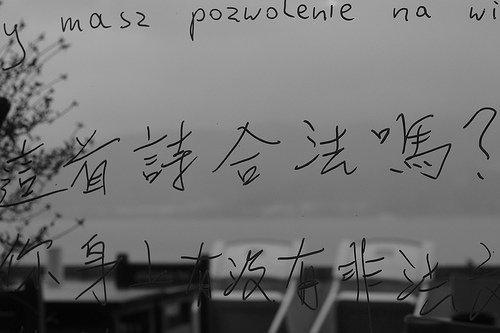 y masz pozwolenie na wi
這首詩合法嗎?
你身上有沒有非法